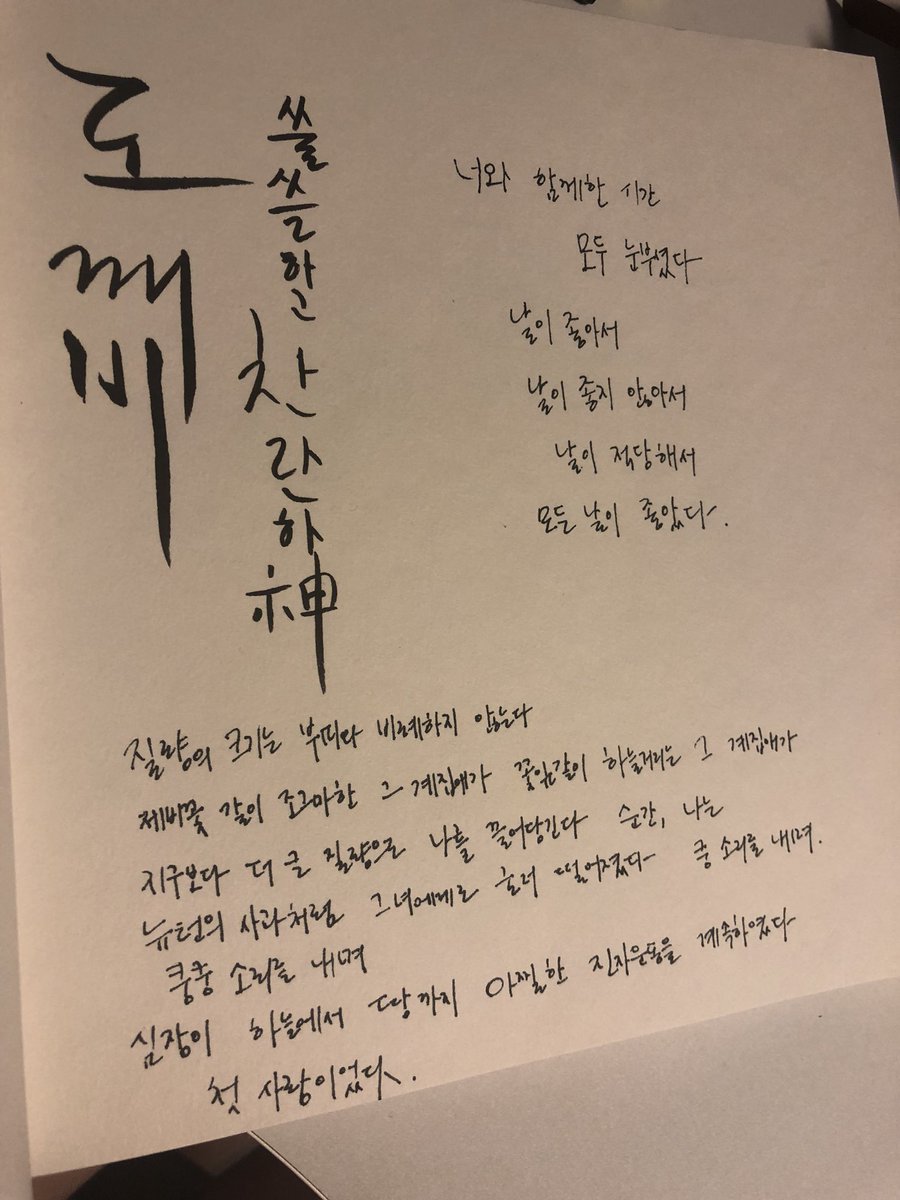 도깨비
쓸쓸하고 찬란하神
너와 함께한 시간
모두 눈부셨다
날이 좋아서
날이 좋지 않아서
날이 적당해서
모든 날이 좋았다.
질량의 크기는 부피와 비례하지 않는다
제비꽃 같이 조그마한 그 계집애가 꽃잎같이 하늘거리는 그 계집애가
지구보다 더 큰 질량으로 나를 끌어당긴다 순간, 나는
뉴턴의 사과처럼 그녀에게로 굴러 떨어졌다 쿵 소리를 내며.
쿵쿵 소리를 내며
심장이 하늘에서 땅까지 아찔한 진자운동을 계속하였다
첫 사랑이었다.